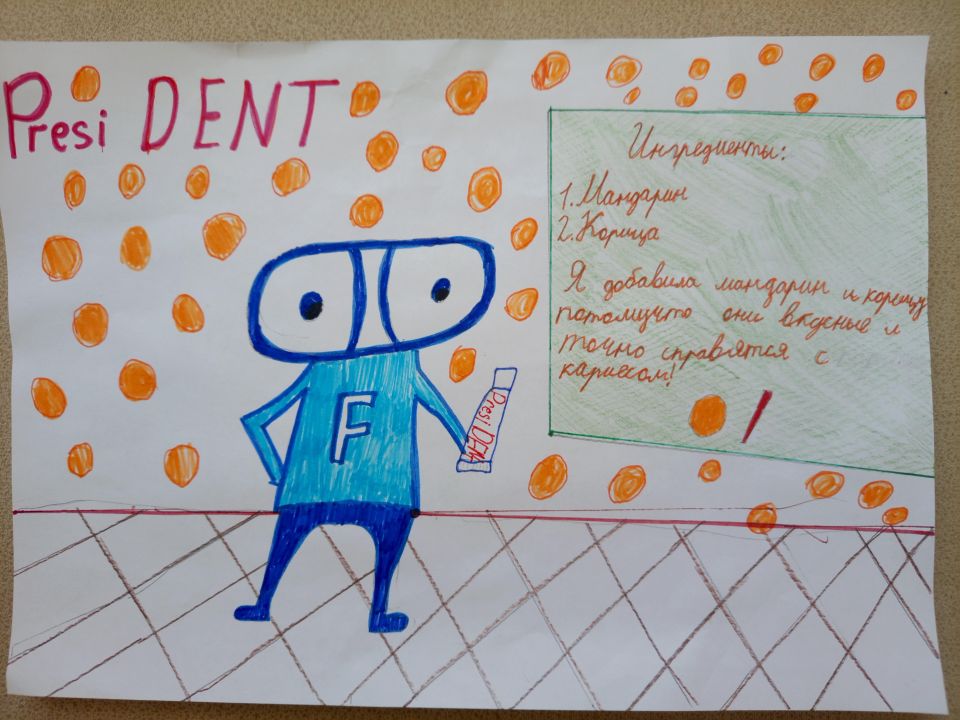 Presi DENT
Ингредиенты:
1. Мандарин
2. Корица
Я добавила мандарин и корицу
потомучто они вкусные и
точно справятся с
кариесом!
F
Presi DENT